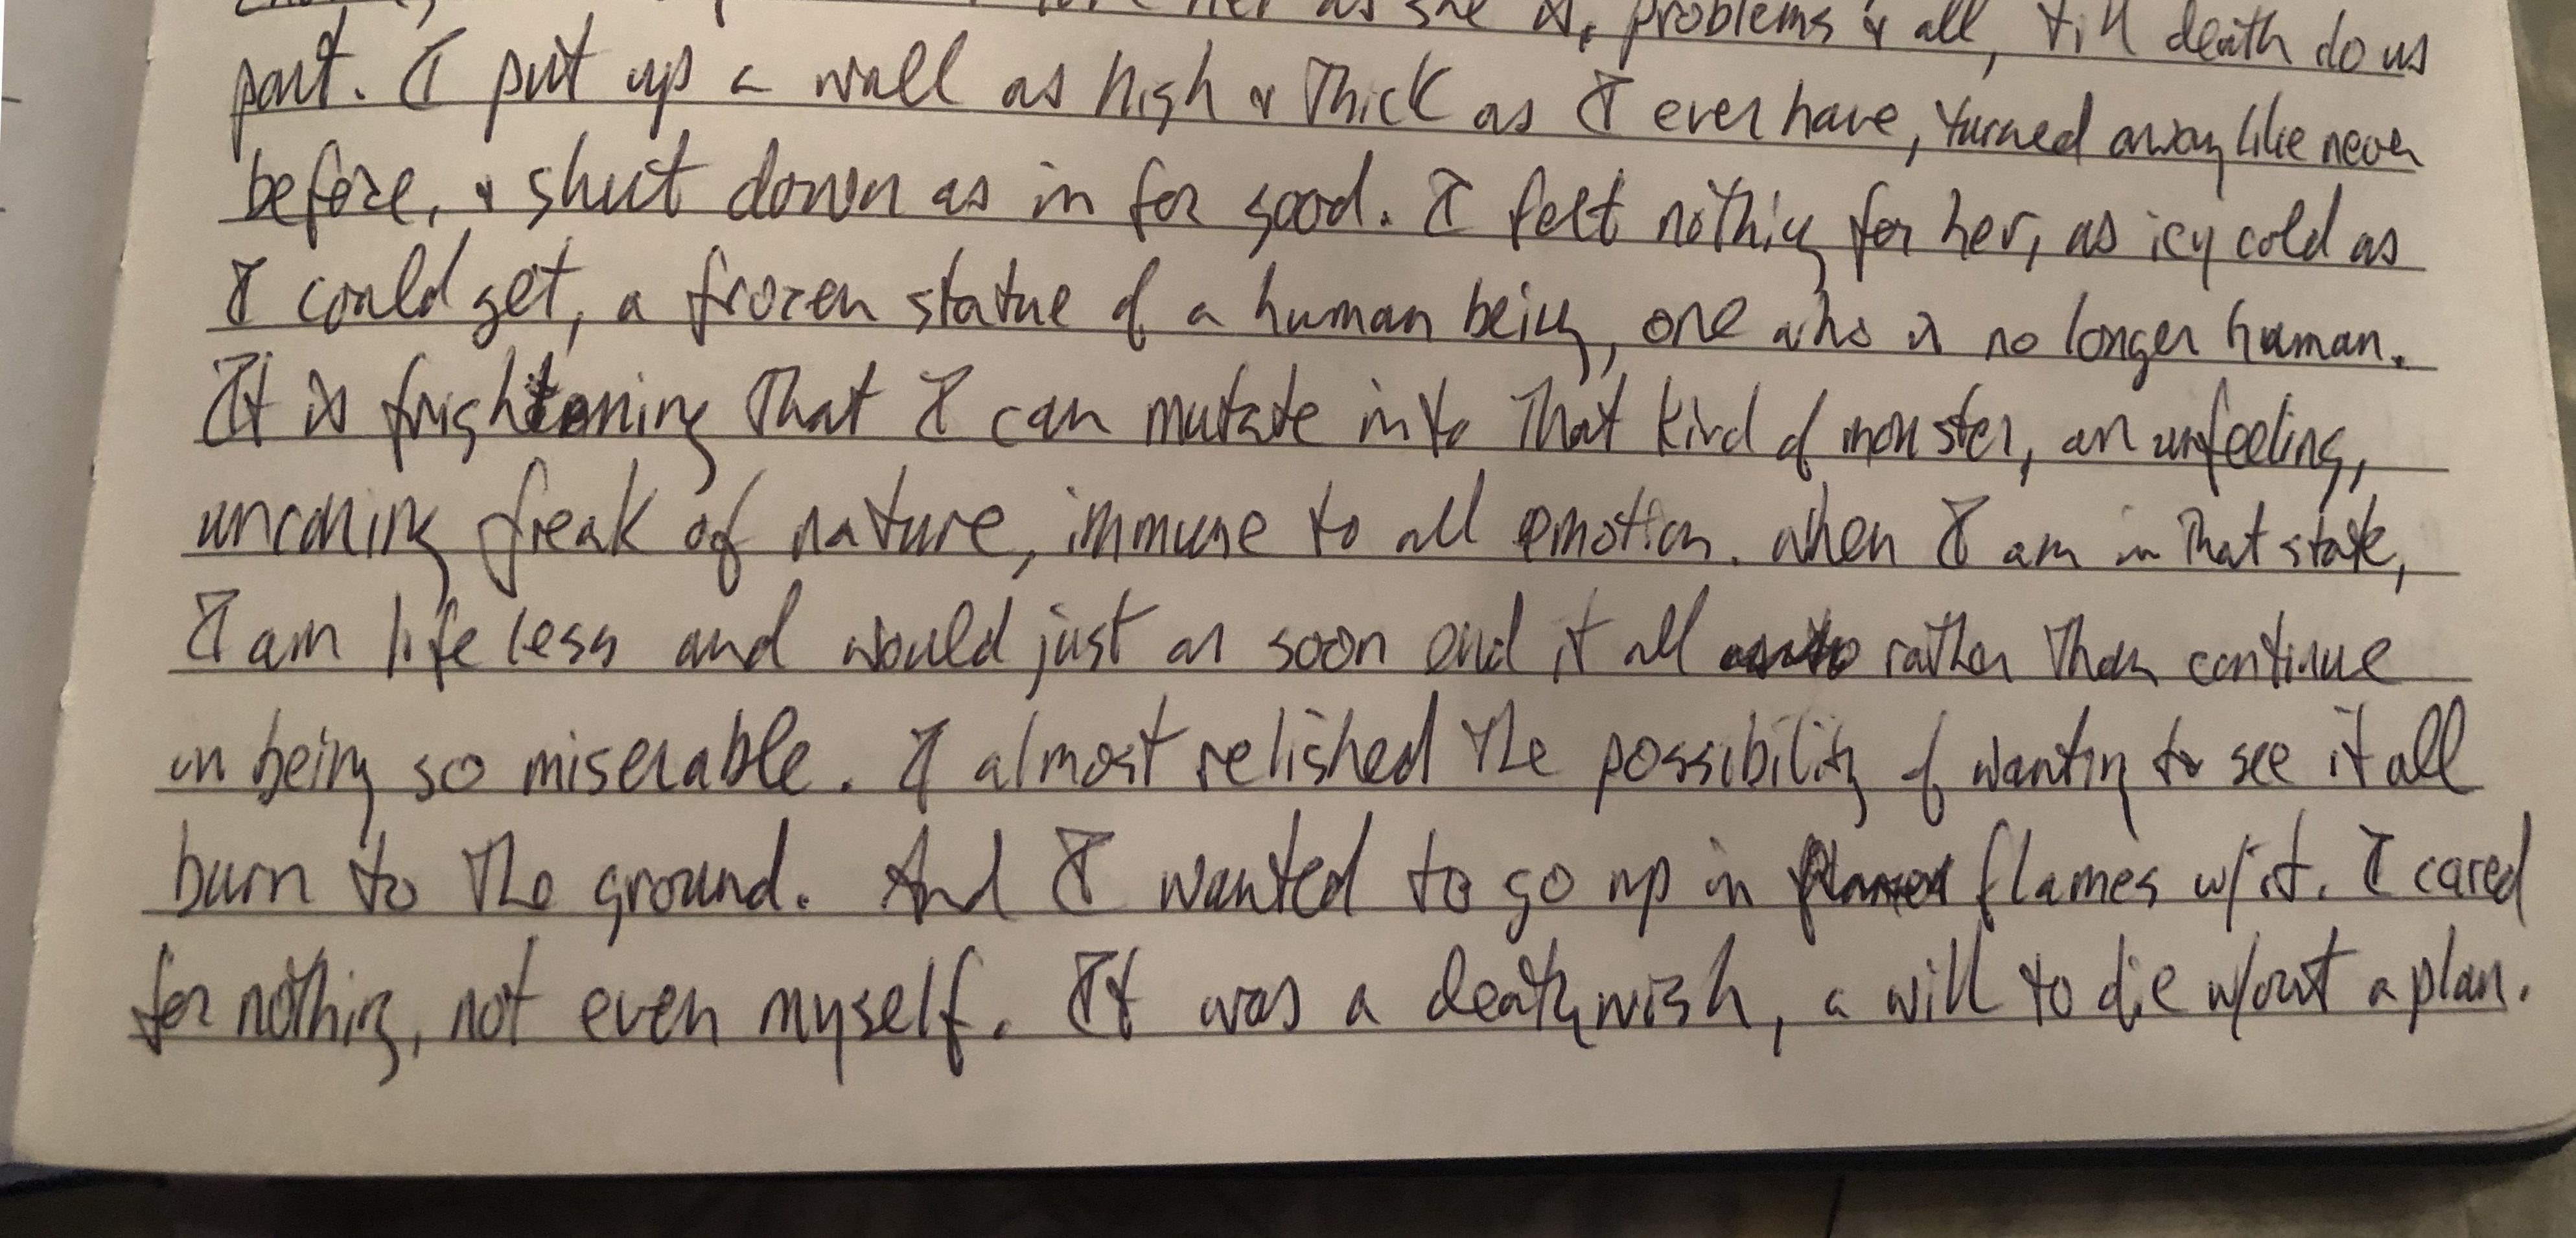 her as she is, problems & all, till death do us
part. I put up a wall as high & thick as I ever have, turned away like never
before, & shut down as in for good. I felt nothing for her, as icy cold as
I could get, a frozen statue of a human being, one who is no longer human.
It is frightening that I can mutate into that kind of monster, an unfeeling,
uncaring freak of nature, immune to all emotion. When I am in that state,
I am lifeless and would just as soon end it all rather than continue
on being so miserable. I almost relished the possibility of wanting to see it all
burn to the ground. And I wanted to go up in flames w/it. I cared
for nothing, not even myself. It was a death wish, a will to die w/out a plan.